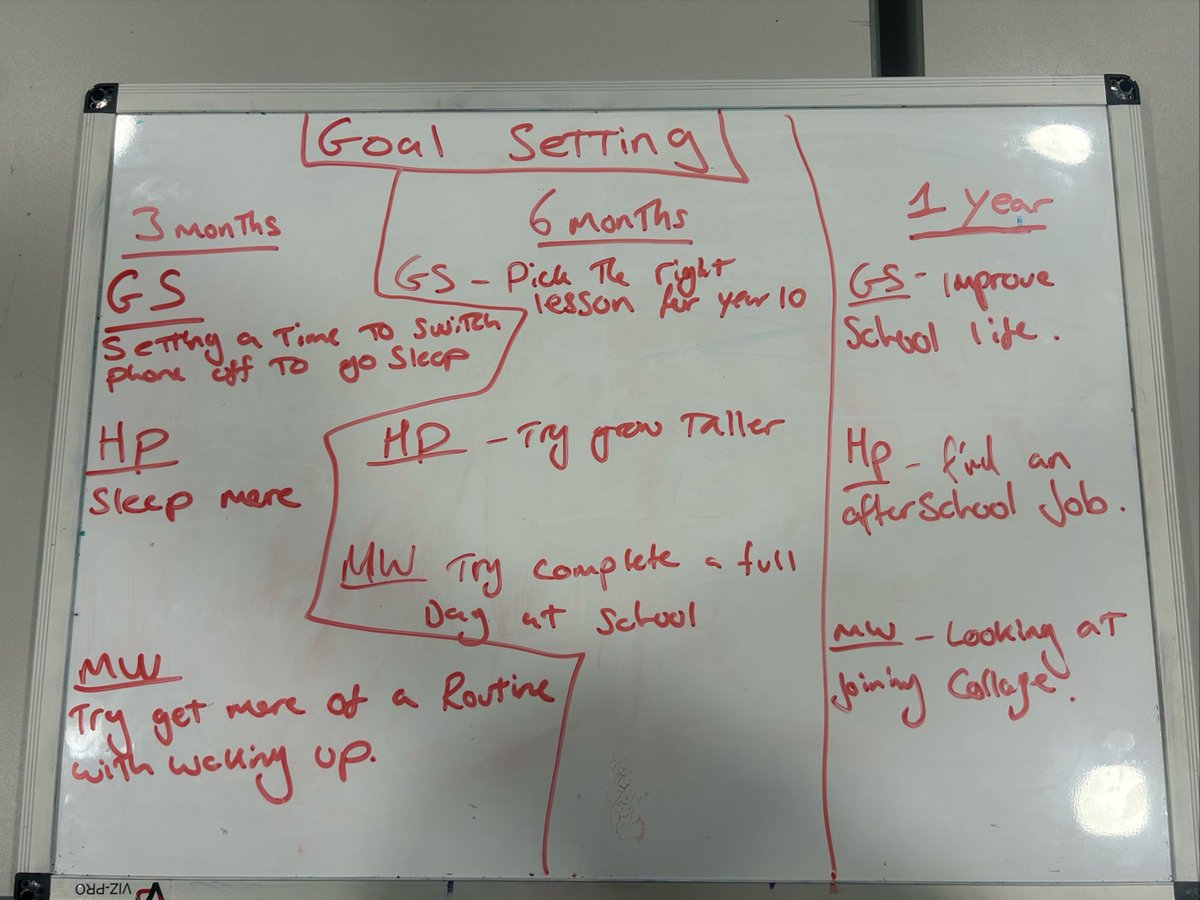 Goal Setting
3 months
GS
Setting a Time To Switch
phone off To go Sleep
HP
Sleep more
MW
Try get more of a Routine
with waking up.
6 months
GS - Pick The right
lesson for year 10
HP - Try grow Taller
MW Try complete a full
Day at School
1 year
GS - improve
School life.
HP - find an
afterSchool Job.
MW - Looking at
Joining Collage.
VIZ-PRO